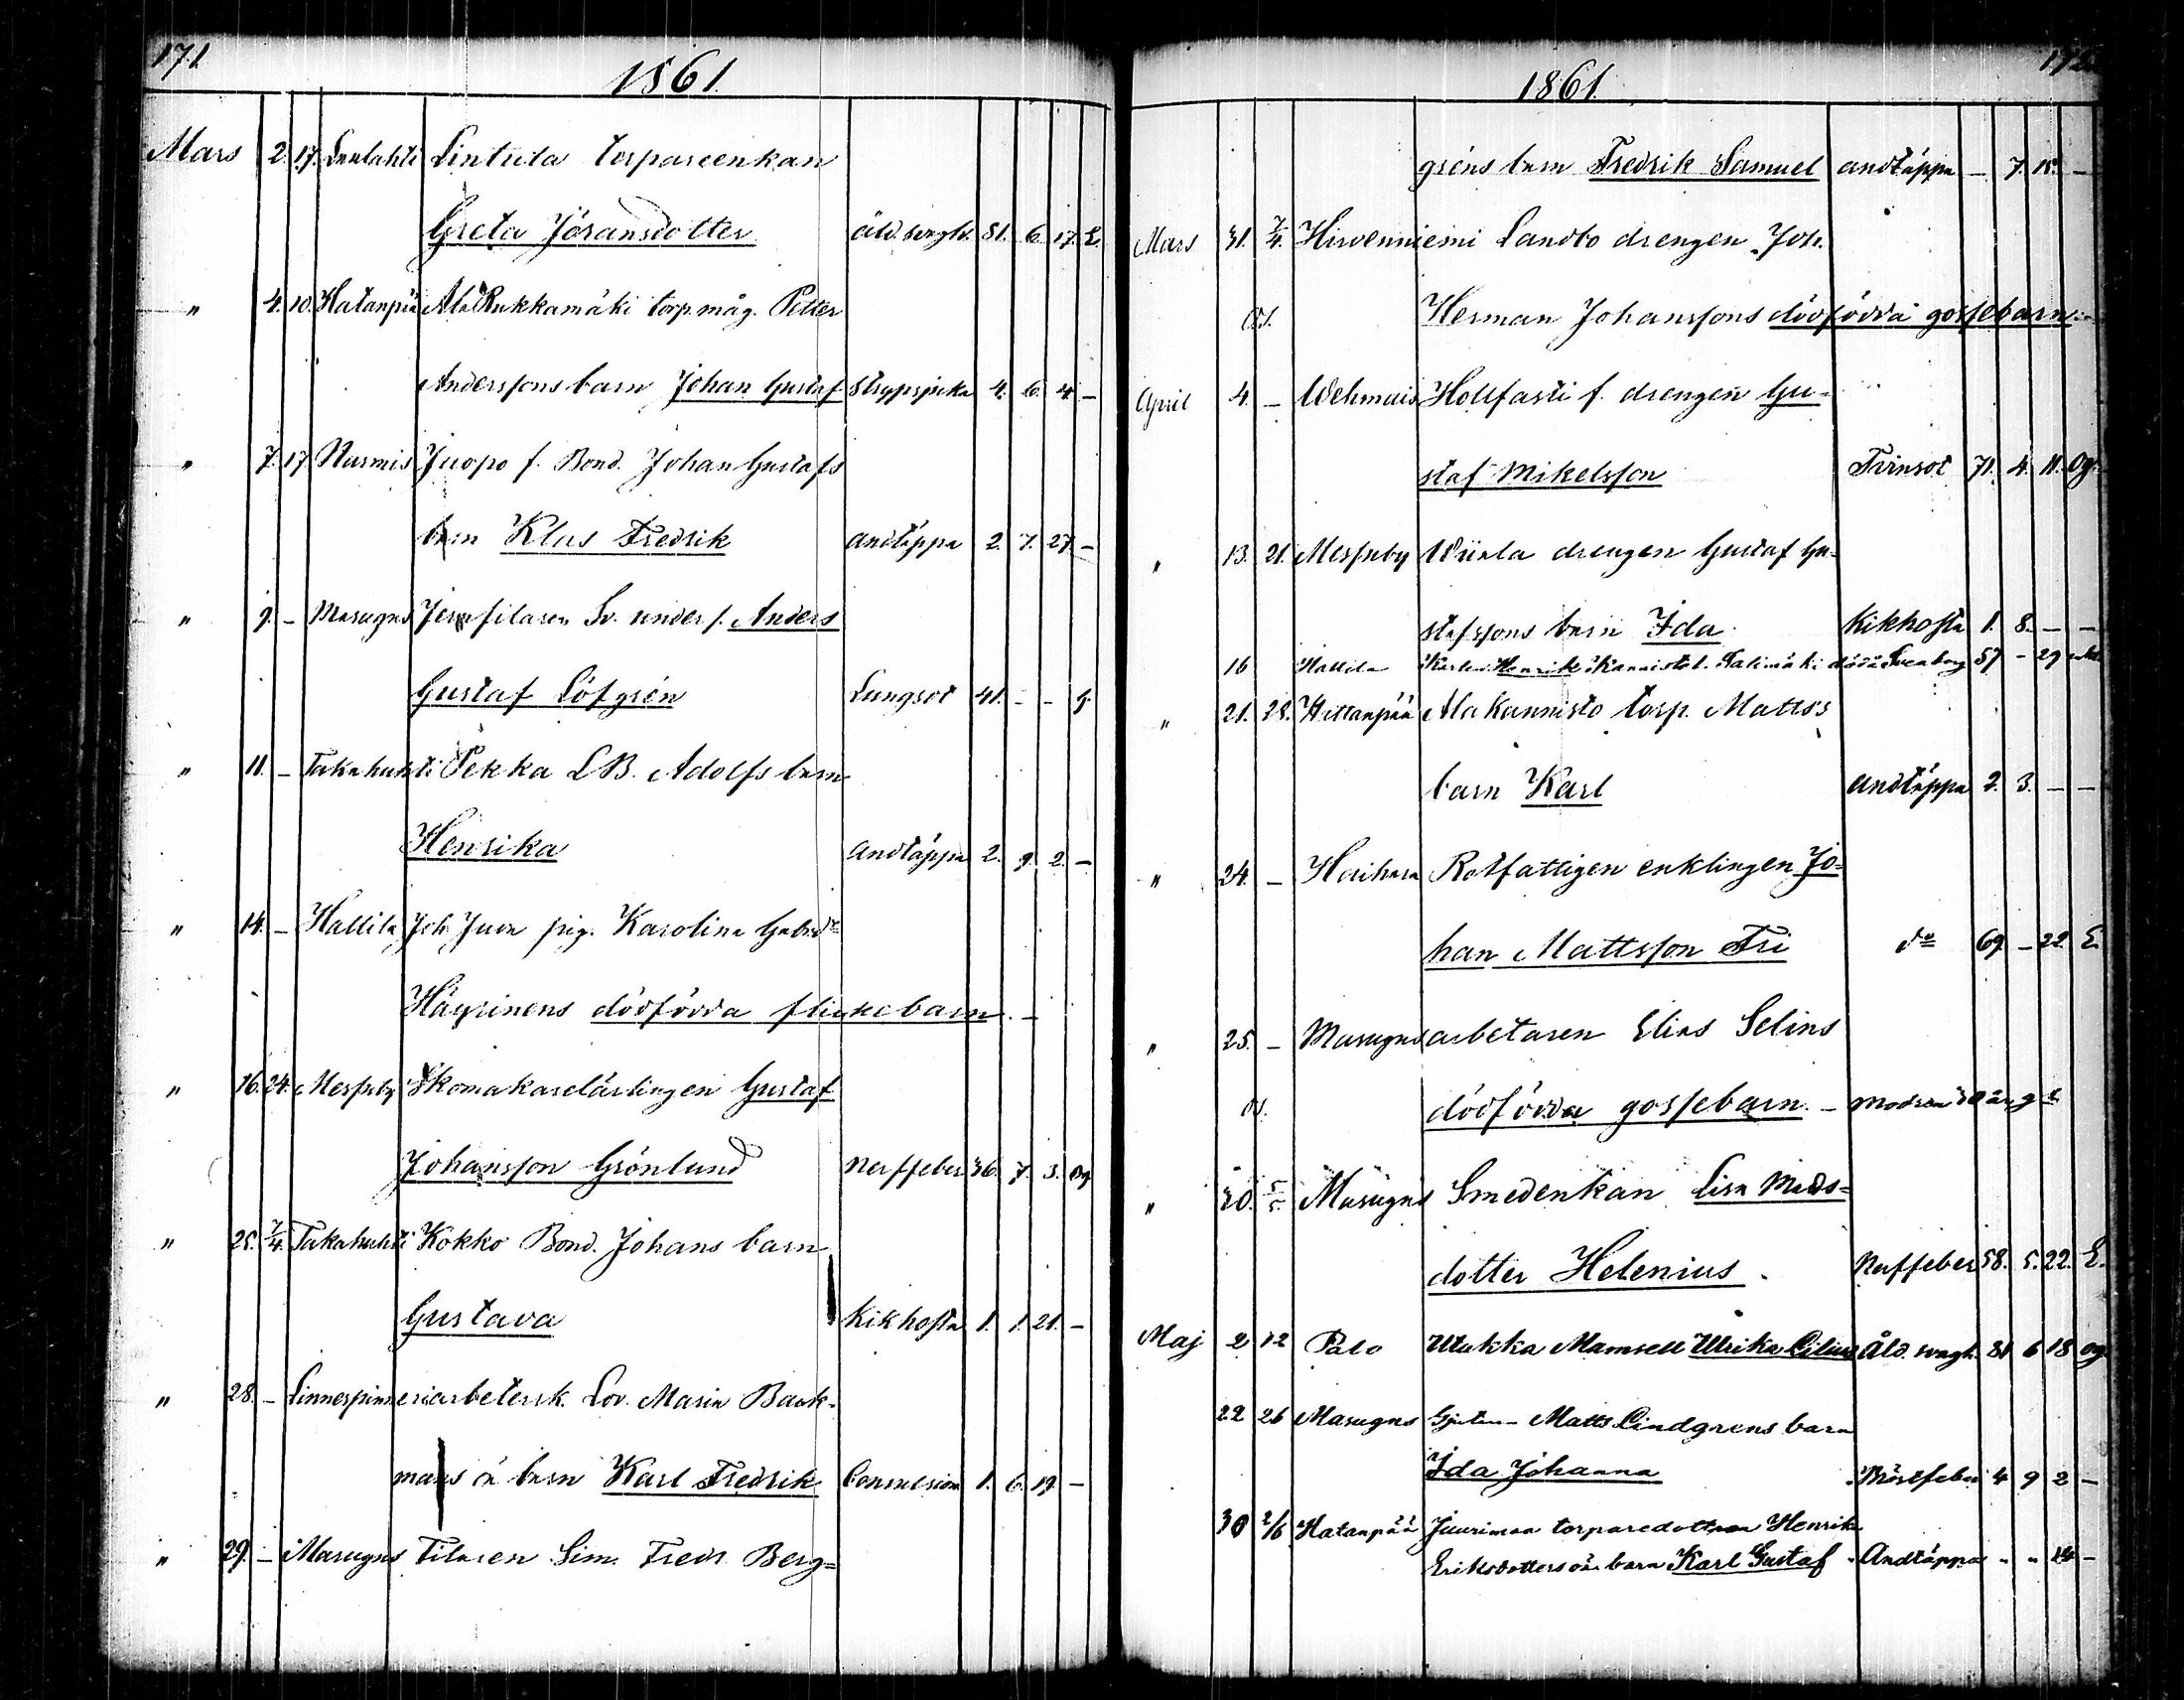 171
1861
Mars 2. 17. Lentula torpareenkan
Greta Jöransdotter Åld. svagh. 81. 6. 17. E.
" 4. 10. Hatanpää Ala Rukkamäki torp. måg. Petter
Anderssons barn Johan Gustaf Strypsjuka 4. 6. 4. –
" 7. 17. Nurmis Juopo f. Bond. Johan Gustafs
barn Klas Fredrik Andtäppa 2. 7. 27. –
" 9. – Masugns Jernfilaren Sv. under s. Anders
Gustaf Löfgrén Lungsot 41. – – g.
" 11. – Takahuhti Pekka LB. Adolfs barn
Henrika Andtäppa 2. 9. 2. –
" 14. – Hallila Joh. Juva pig. Karolina Gabr.dr
Häyrinens dödfödda flickebarn. –
" 16. 24. Messuby Skomakarelärlingen Gustaf
Johansson Grönlund Nerffeber 36. 7. 3. Og
" 25. 7/4. Takahuhti Kokko Bond. Johans barn
Gustava Kikhosta 1. 1. 21. –
" 28. – Linnespinneriarbetersk. Lov. Maria Back-
mans oä barn Karl Fredrik Convulsion 1. 6. 19. –
" 29. – Masugns Filaren Sim. Fredr. Berg=
172
1861.
gréns barn Fredrik Samuel Andtäppa – 7. 15. –
Mars 31. 7/4. Hirvenniemi Landbo drengen Joh.
Herman Johanssons dödfödda gossebarn. –
April 4. – Wehmais Hollfasti f. drengen Gu=
staf Mikelsson Tärnsot 71. 4. 11. Og.
" 13. 21. Messuby Wiinla drengen Gustaf Gu=
stafssons barn Ida Kikhosta 1. 8. – –
16 Hallila Henrik Kannisto l. Salimäki död i Sveaborg 57 – 29
" 21. 28. Hattanpää Ala Kannisto torp. Matts's
barn Karl Andtäppa 2. 3. – –
" 24. – Rotfattigen enklingen Jo=
han Mattsson Fri do 69. – 22. E.
" 25. – Masugns arbetaren Elias Selins
dödfödda gossebarn. – modren 30 år g.
" 30. 5/5. Masugns Smedenkan Lisa Mads=
dotter Helenius. Nerffeber 58. 5. 22. E.
Maj 2 12 Palo Utukka Mamsell Ulrika Cilius Åld. svagh. 81 6 18 og
22 26 Masugns Gjutar Matts Lindgrens barn
Ida Johanna Bröstfeber 4 9 2 –
30 2/6 Hatanpää Juurimaa torparedottren Henrika
Eriksdotters oä. barn Karl Gustaf Andtäppa " " 14 –